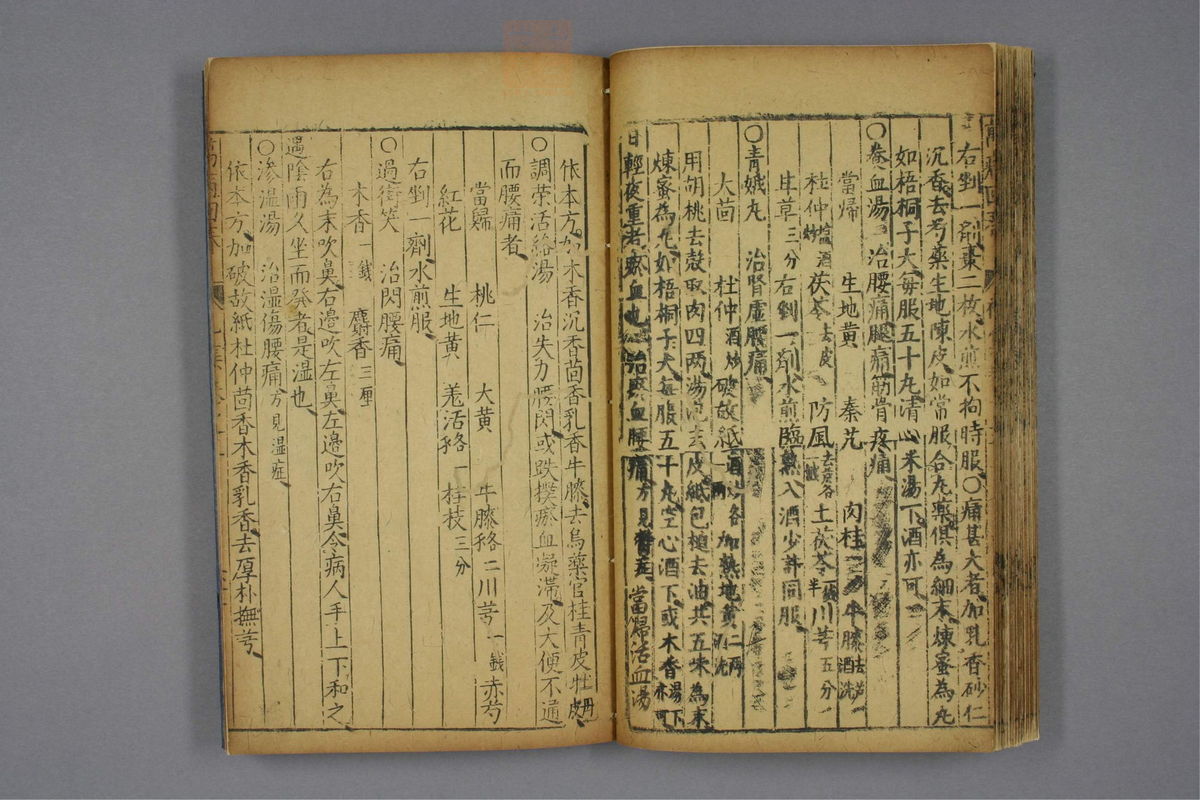 右剉一劑棗二枚水煎不拘時服○痛甚大者加乳香砂仁
沉香去芍藥生地陳皮如常服合丸藥俱為細末煉蜜為丸
如梧桐子大每服五十丸清心米湯下酒亦可
○養血湯 治腰痛腿痛筋骨疼痛
當帰 生地黃 秦艽 肉桂 牛膝去芦酒洗
杜仲塩酒炒 茯苓去皮 防風去芦各一錢 土茯苓一錢半 川芎五分
甘草三分 右剉一劑水煎臨熟入酒少許同服
○青娥丸 治腎虛腰痛
大茴 杜仲酒炒 破故紙 加熟地黃二兩酒洗
用胡桃去殼取肉四两湯泡去皮紙包搥去油共五味為末
煉蜜為丸如梧桐子大每服五十丸空心酒下或木香湯下亦可
日輕夜重者瘀血也 治瘀血腰痛方見 當歸活血湯
依本方加木香沉香茴香乳香牛膝去烏藥官桂青皮牡丹皮
○調荣活絡湯 治失力腰閃或跌撲瘀血凝滯及大便不通
而腰痛者
當歸 桃仁 大黃 牛膝各二 川芎一錢 赤芍
紅花 生地黃 羌活各一 桂枝三分
右剉一劑水煎服
○過街笑 治閃腰痛
木香一錢 麝香三厘
右為末吹鼻右邊吹左鼻左邊吹右鼻令病人手上下和之
遇陰雨久坐而發者是濕也
○滲濕湯 治濕傷腰痛方見濕症
依本方加破故紙杜仲茴香木香乳香去厚朴撫芎